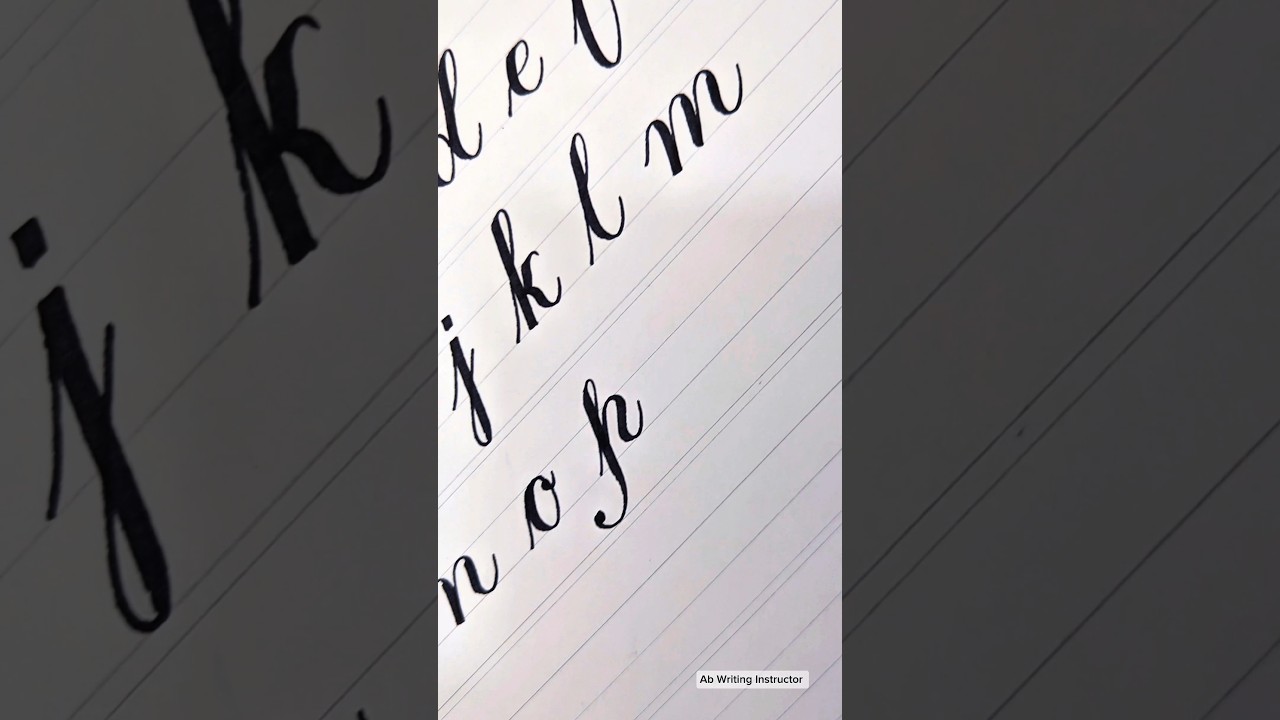 d e
j k l m
n o p
Ab Writing Instructor